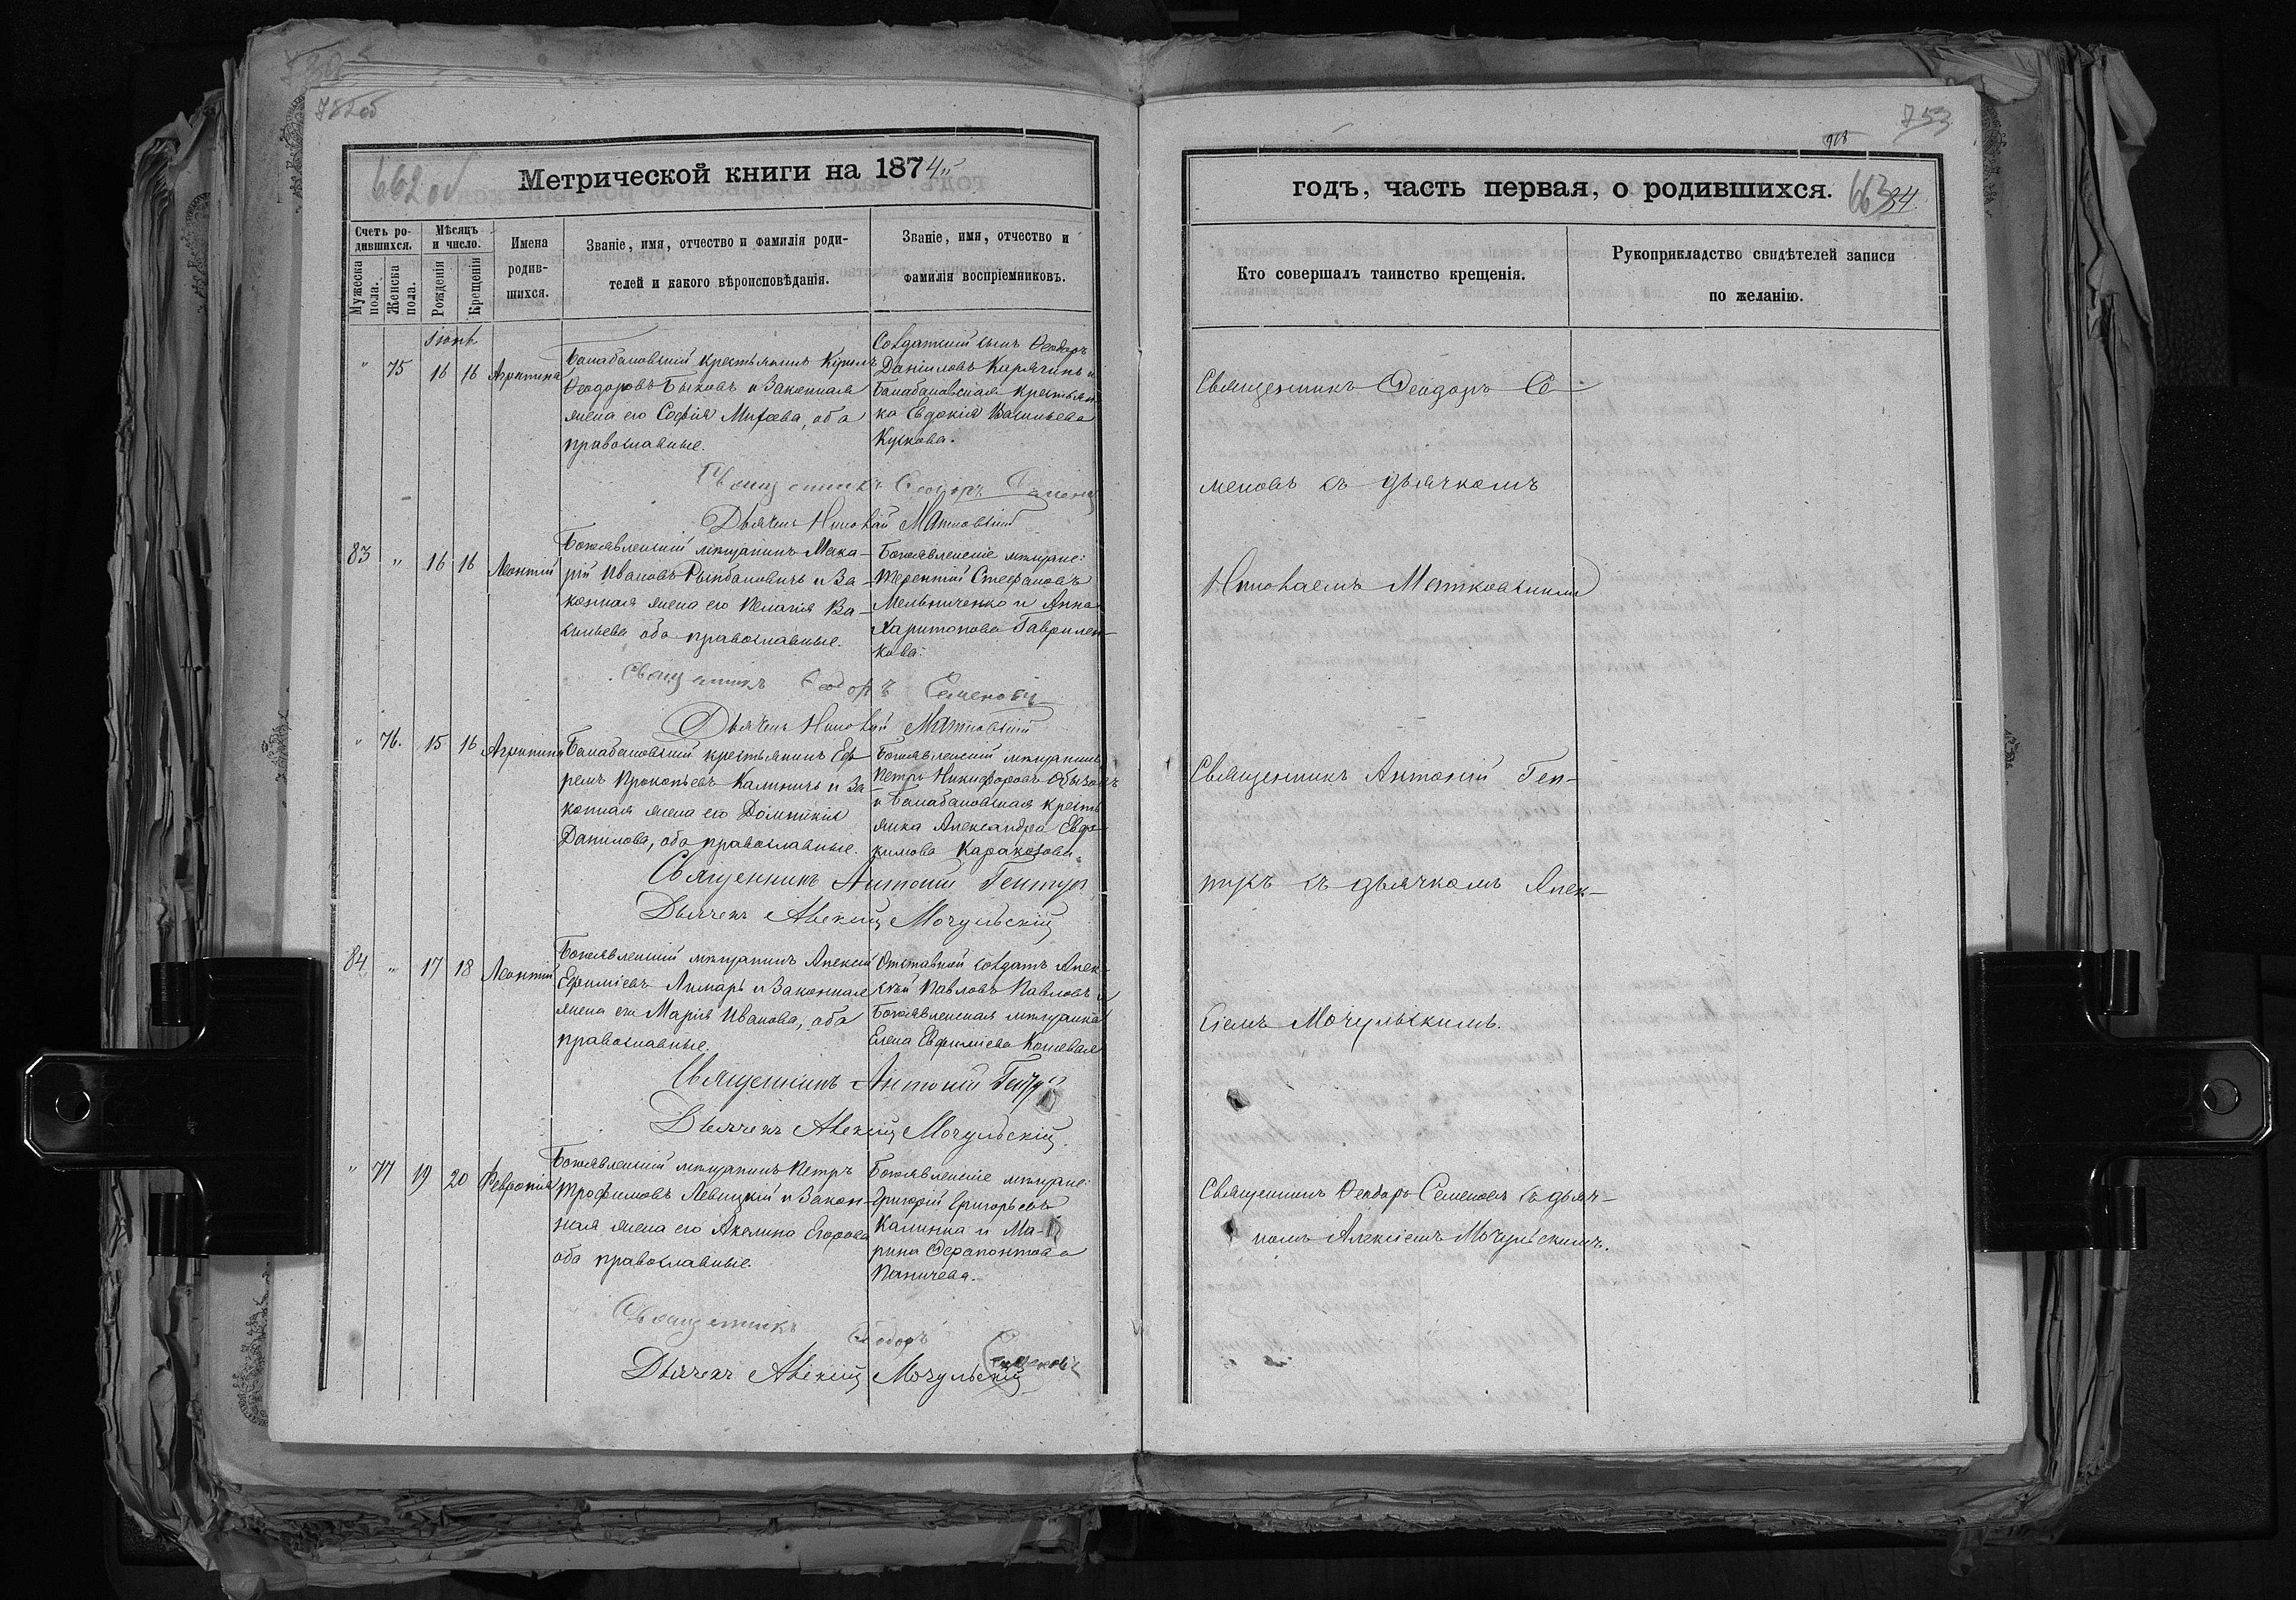 752 об
662 об
Метрической книги на 1874й
Счетъ ро-
дившихся.
Мужеска пола.
Женска пола.
Мѣсяцъ
и число.
Рожденія
Крещенія
Имена
родив-
шихся.
Званіе, имя, отчество и фамилія роди-
телей и какого вѣроисповѣданія.
Званіе, имя, отчество и
фамилія воспріемниковъ.
Іюнь
" 75 16 16 Агрипина
Балабановскій крестьянинъ
Ѳеодоровъ Быковъ и законная
жена его Софія оба
православные.
Солдатскій сынъ Ѳеодоръ
Даніиловъ Карягинъ и
Балабановская крестьян-
ка Евдокія Васильева
Кускова.
Священникъ Ѳеодоръ
Дьячекъ Николай Матковскій
83 " 16 16 Леонтій
Богоявленскій мѣщанинъ Мака-
рій Ивановъ Рымбановичъ и за-
конная жена его Пелагія Ва-
сильева оба православные.
Богоявленскіе мѣщане:
Терентій Стефановъ
Мельниченко и Анна
Харитонова Гаврилен-
кова.
Священникъ Ѳеодоръ Семеновъ
Дьячекъ Николай Матковскій
" 76. 15 16 Агрипина
Балабановскій крестьянинъ Еф-
ремъ Прокопьевъ Калининъ и за-
конная жена его Домникія
Данилова, оба православные.
Богоявленскій мѣщанинъ
Петръ Никифоровъ
и Балабановская кресть-
янка Александра Евфи-
кимова Каракозова.
Священникъ Антоній Гентуръ
Дьячекъ Алексій Мочульскій
84 " 17 18 Леонтій
Богоявленскій мѣщанинъ Алексій
Ефиміевъ Лимарь и законная
жена его Марія Иванова, оба
православные.
Отставной солдатъ Алек-
сѣй Павловъ Павловъ и
Богоявленская мѣщанка
Елена Евфиміева Кошевая
Священникъ Антоній Гентуръ
Дьячекъ Алексій Мочульскій.
" 77 19 20 Февронія
Богоявленскій мѣщанинъ Петръ
Трофимовъ Левицкій и закон-
ная жена его Акелина Егорова
оба православные.
Богоявленскіе мѣщане:
Григорій Григорьевъ
Калинка и Ма-
рина Ѳерапонтова
Паничева.
Священникъ Ѳеодоръ Семеновъ
Дьячекъ Алексій Мочульскій
753
годъ, часть первая, о родившихся.
663 84.
Кто совершалъ таинство крещенія.
Рукоприкладство свидѣтелей записи
по желанію.
Священникъ Ѳеодоръ Се-
меновъ съ дьячкомъ
Николаемъ Матковскимъ
Священникъ Антоній Ген-
туръ съ дьячкомъ Алек-
сіемъ Мочульскимъ.
Священникъ Ѳеодоръ Семеновъ съ дьяч-
комъ Алексіемъ Мочульскимъ.